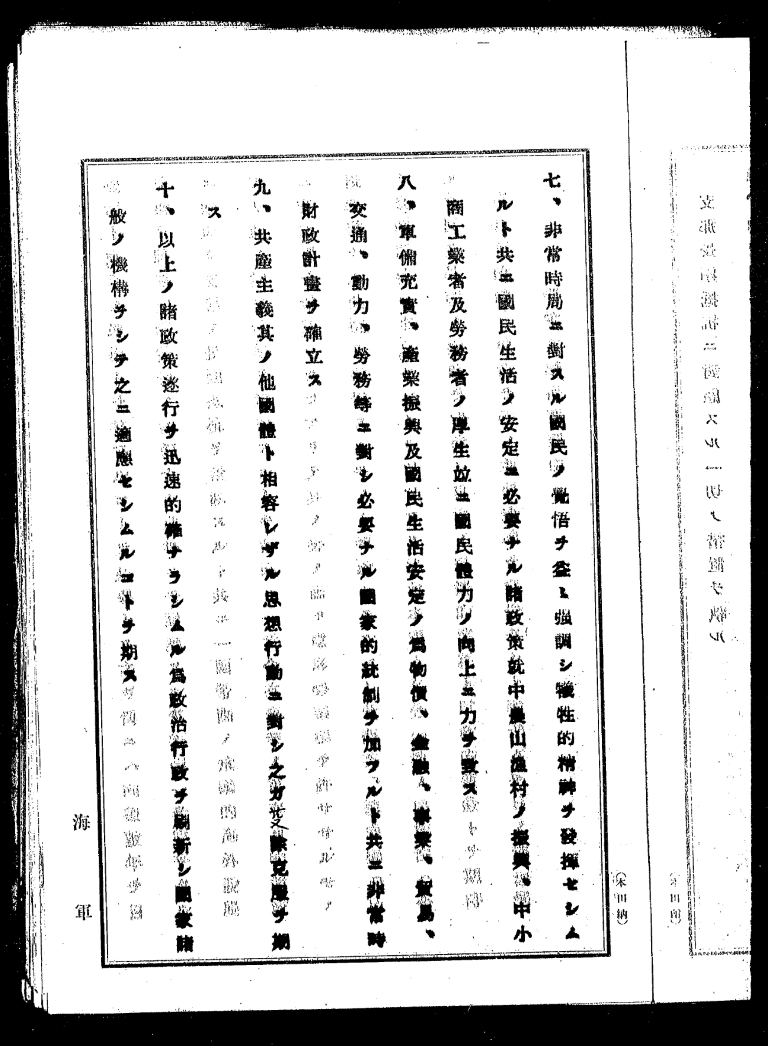 七、非常時局ニ對スル國民ノ覺悟ヲ益〻强調シ犧牲的精神ヲ發揮セシム
ルト共ニ國民生活ノ安定ニ必要ナル諸政策就中農山漁村ノ振興、中小
商工業者及勞務者ノ厚生竝ニ國民體力ノ向上ニ力ヲ致ス
八、軍備充實、產業振興及國民生活安定ノ爲物價、金融、事業、貿易、
交通、動力、勞務等ニ對シ必要ナル國家的統制ヲ加フルト共ニ非常時
財政計畫ヲ確立ス
九、共產主義其ノ他國體ト相容レザル思想行動ニ對シ之ガ芟除克服ヲ期
ス
十、以上ノ諸政策遂行ヲ迅速的確ナラシムル爲政治行政ヲ刷新シ國家諸
般ノ機構ヲシテ之ニ適應セシムルコトヲ期ス
海軍